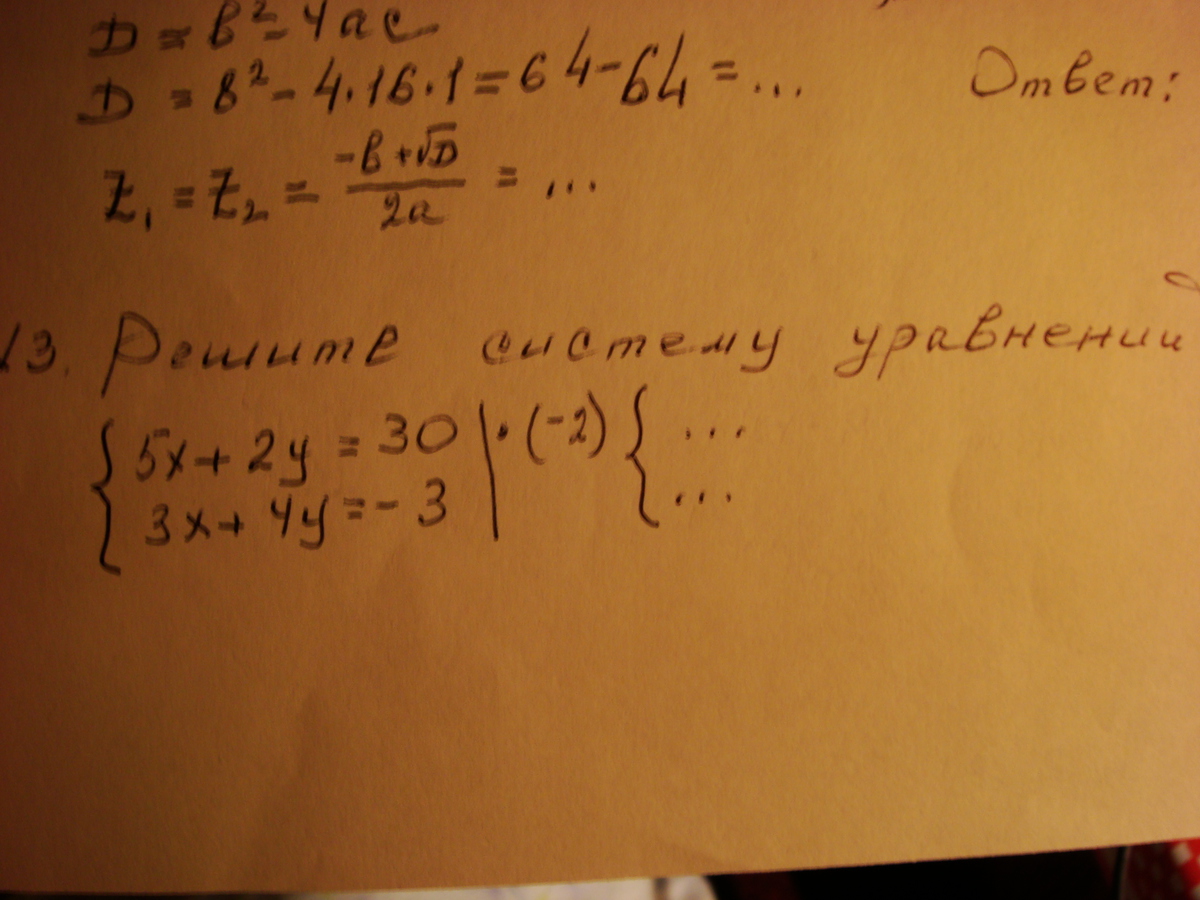 D = b² - 4ac
D = 8² - 4·16·1 = 64 - 64 = ...
Ответ:
z₁ = z₂ = (-b + √D) / 2a = ...
3. Решите систему уравнений
{ 5x + 2y = 30 | · (-2) { ...
3x + 4y = - 3 | ...